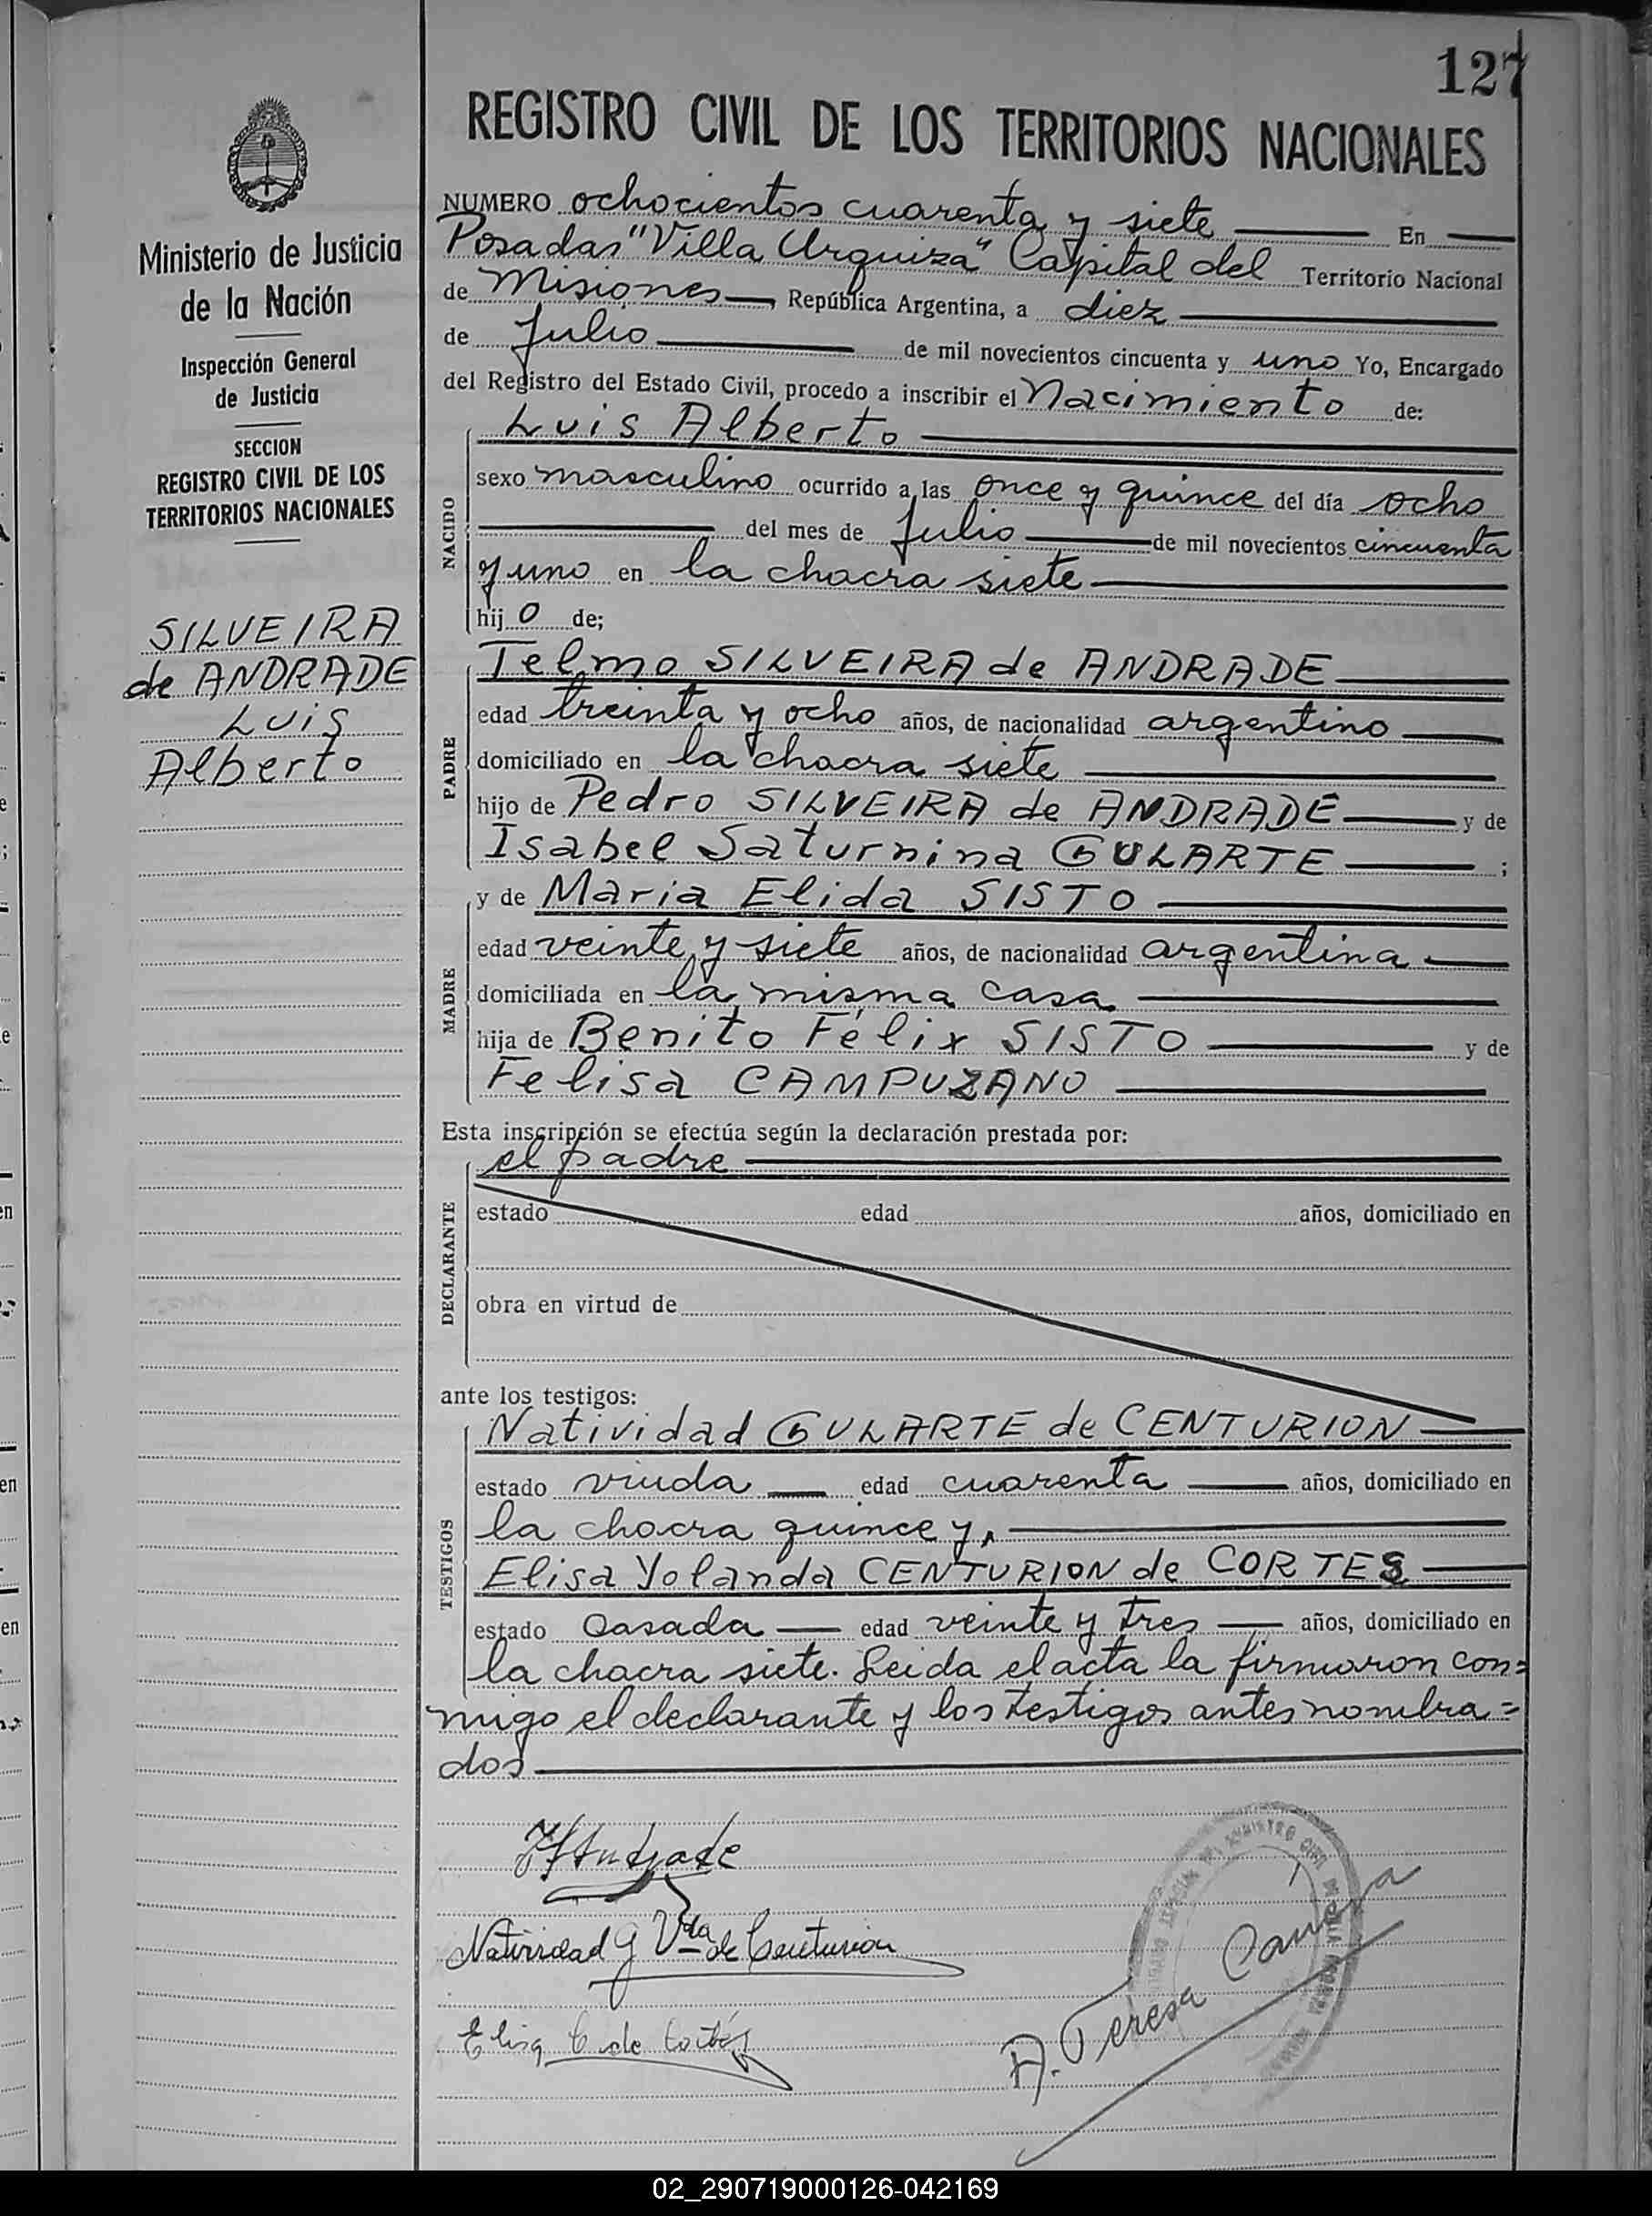 127
REGISTRO CIVIL DE LOS TERRITORIOS NACIONALES
Ministerio de Justicia
de la Nación
Inspección General
de Justicia
SECCION
REGISTRO CIVIL DE LOS
TERRITORIOS NACIONALES
SILVEIRA
de ANDRADE
Luis
Alberto
NUMERO ochocientos cuarenta y siete En
Posadas "Villa Urquiza" Capital del Territorio Nacional
de Misiones, República Argentina, a diez
de Julio de mil novecientos cincuenta y uno Yo, Encargado
del Registro del Estado Civil, procedo a inscribir el Nacimiento de:
NACIDO
Luis Alberto
sexo masculino ocurrido a las once y quince del día ocho
del mes de Julio de mil novecientos cincuenta
y uno en la chacra siete
hijo de;
PADRE
Telmo SILVEIRA de ANDRADE
edad treinta y ocho años, de nacionalidad argentino
domiciliado en la chacra siete
hijo de Pedro SILVEIRA de ANDRADE y de
Isabel Saturnina GULARTE ;
MADRE
y de Maria Elida SISTO
edad veinte y siete años, de nacionalidad argentina
domiciliada en la misma casa
hija de Benito Félix SISTO y de
Felisa CAMPUZANO
Esta inscripción se efectúa según la declaración prestada por:
DECLARANTE
el padre
estado edad años, domiciliado en
obra en virtud de
ante los testigos:
TESTIGOS
Natividad GULARTE de CENTURION
estado viuda edad cuarenta años, domiciliado en
la chacra quince y,
Elisa Yolanda CENTURION de CORTES
estado casada edad veinte y tres años, domiciliado en
la chacra siete. Leida el acta la firmaron con=
migo el declarante y los testigos antes nombra=
dos
Andrade
Natividad G Vda de Centurion
Elisa C de Cortés
A. Teresa
02_290719000126-042169